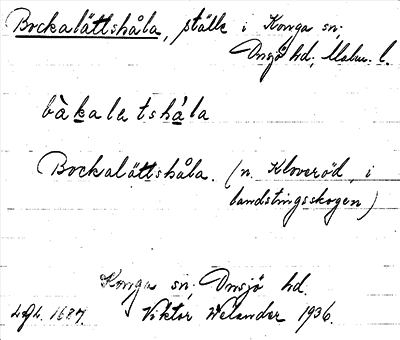 Bockalättshåla, ställe i Konga sn;
Onsjö hd; Malm. l.
bàkaletshála
Bockalättshåla. (n. Kloveröd, i
landstingsskogen)
Konga sn; Onsjö hd.
Lgl. 1687. Viktor Welander 1936.